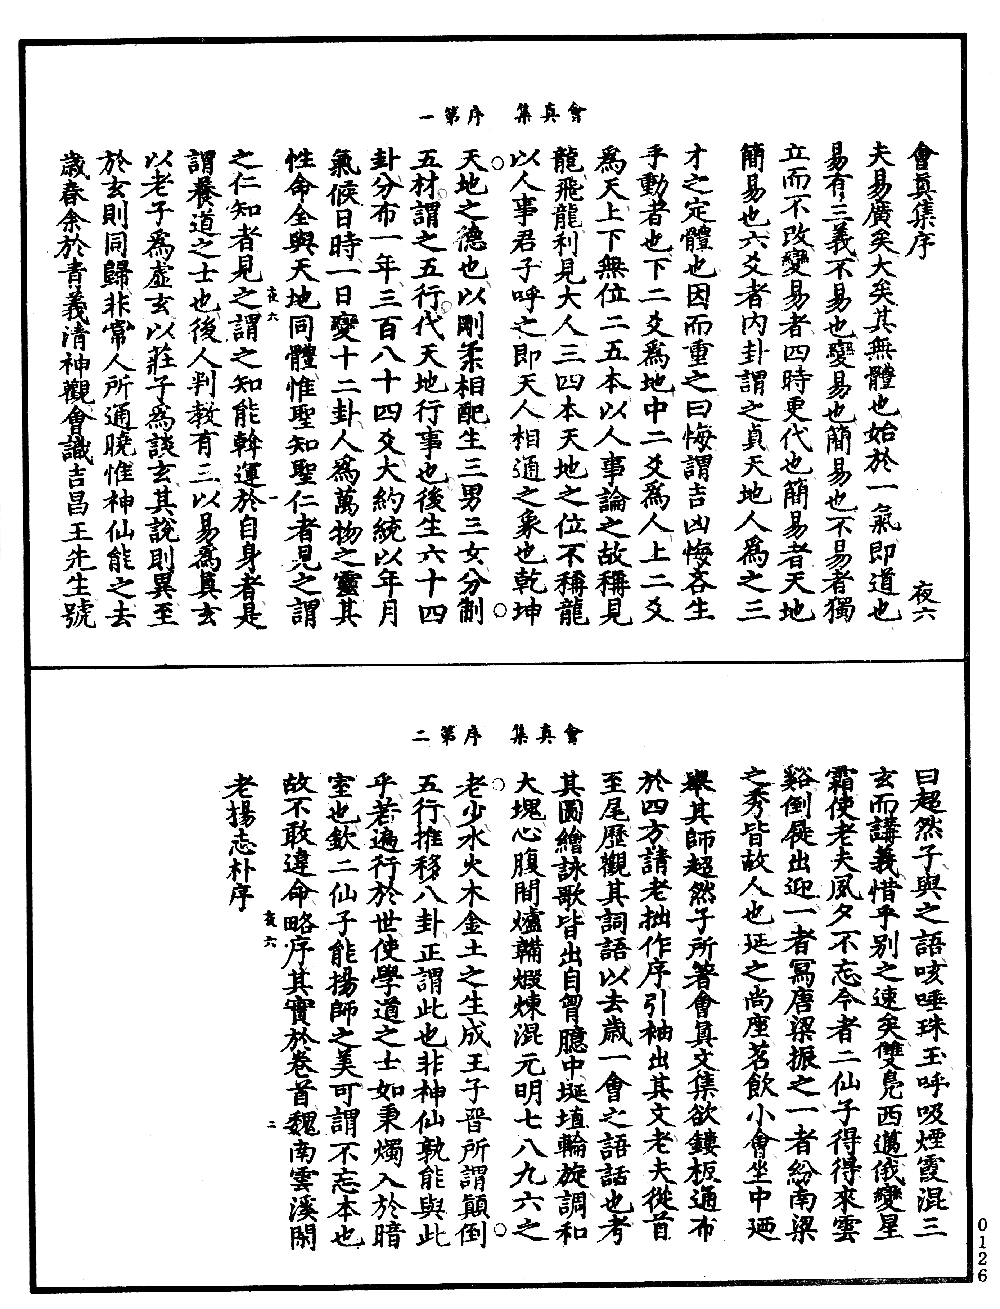 會真集　序第一
會真集序　夜六
夫易廣矣大矣其無體也始於一氣即道也
易有三義不易也變易也簡易也不易者獨
立而不改變易者四時更代也簡易者天地
簡易也六爻者內卦謂之貞天地人為之三
才之定體也因而重之曰悔謂吉凶悔吝生
乎動者也下二爻為地中二爻為人上二爻
為天上下無位二五本以人事論之故稱見
龍飛龍利見大人三四本天地之位不稱龍
以人事君子呼之即天人相通之象也乾坤
天地之德也以剛柔相配生三男三女分制
五材謂之五行代天地行事也後生六十四
卦分布一年三百八十四爻大約統以年月
氣候日時一日變十二卦人為萬物之靈其
性命全與天地同體惟聖知聖仁者見之謂
夜六　一
之仁知者見之謂之知能斡運於自身者是
謂養道之士也後人判教有三以易為真玄
以老子為虛玄以莊子為談玄其說則異至
於玄則同歸非常人所通曉惟神仙能之去
歲春余於青義清神觀會識吉昌王先生號
會真集　序第二
曰超然子與之語咳唾珠玉呼吸煙霞混三
玄而講義惜乎別之速矣雙鳧西邁俄變星
霜使老夫夙夕不忘今者二仙子得得來雲
谿倒屣出迎一者冩唐梁振之一者紛南梁
之秀皆故人也延之尚座茗飲小會坐中廼
舉其師超然子所著會真文集欲鏤板通布
於四方請老拙作序引袖出其文老夫從首
至尾歷觀其詞語以去歲一會之語話也考
其圖繪詠歌皆出自胷臆中埏埴輪旋調和
大塊心腹間爐鞴煅煉混元明七八九六之
老少水火木金土之生成王子晉所謂顛倒
五行推移八卦正謂此也非神仙孰能與此
乎若遍行於世使學道之士如秉燭入於暗
室也欽二仙子能揚師之美可謂不忘本也
故不敢違命略序其實於卷首魏南雲溪閑
夜六　二
老揚志朴序
0126